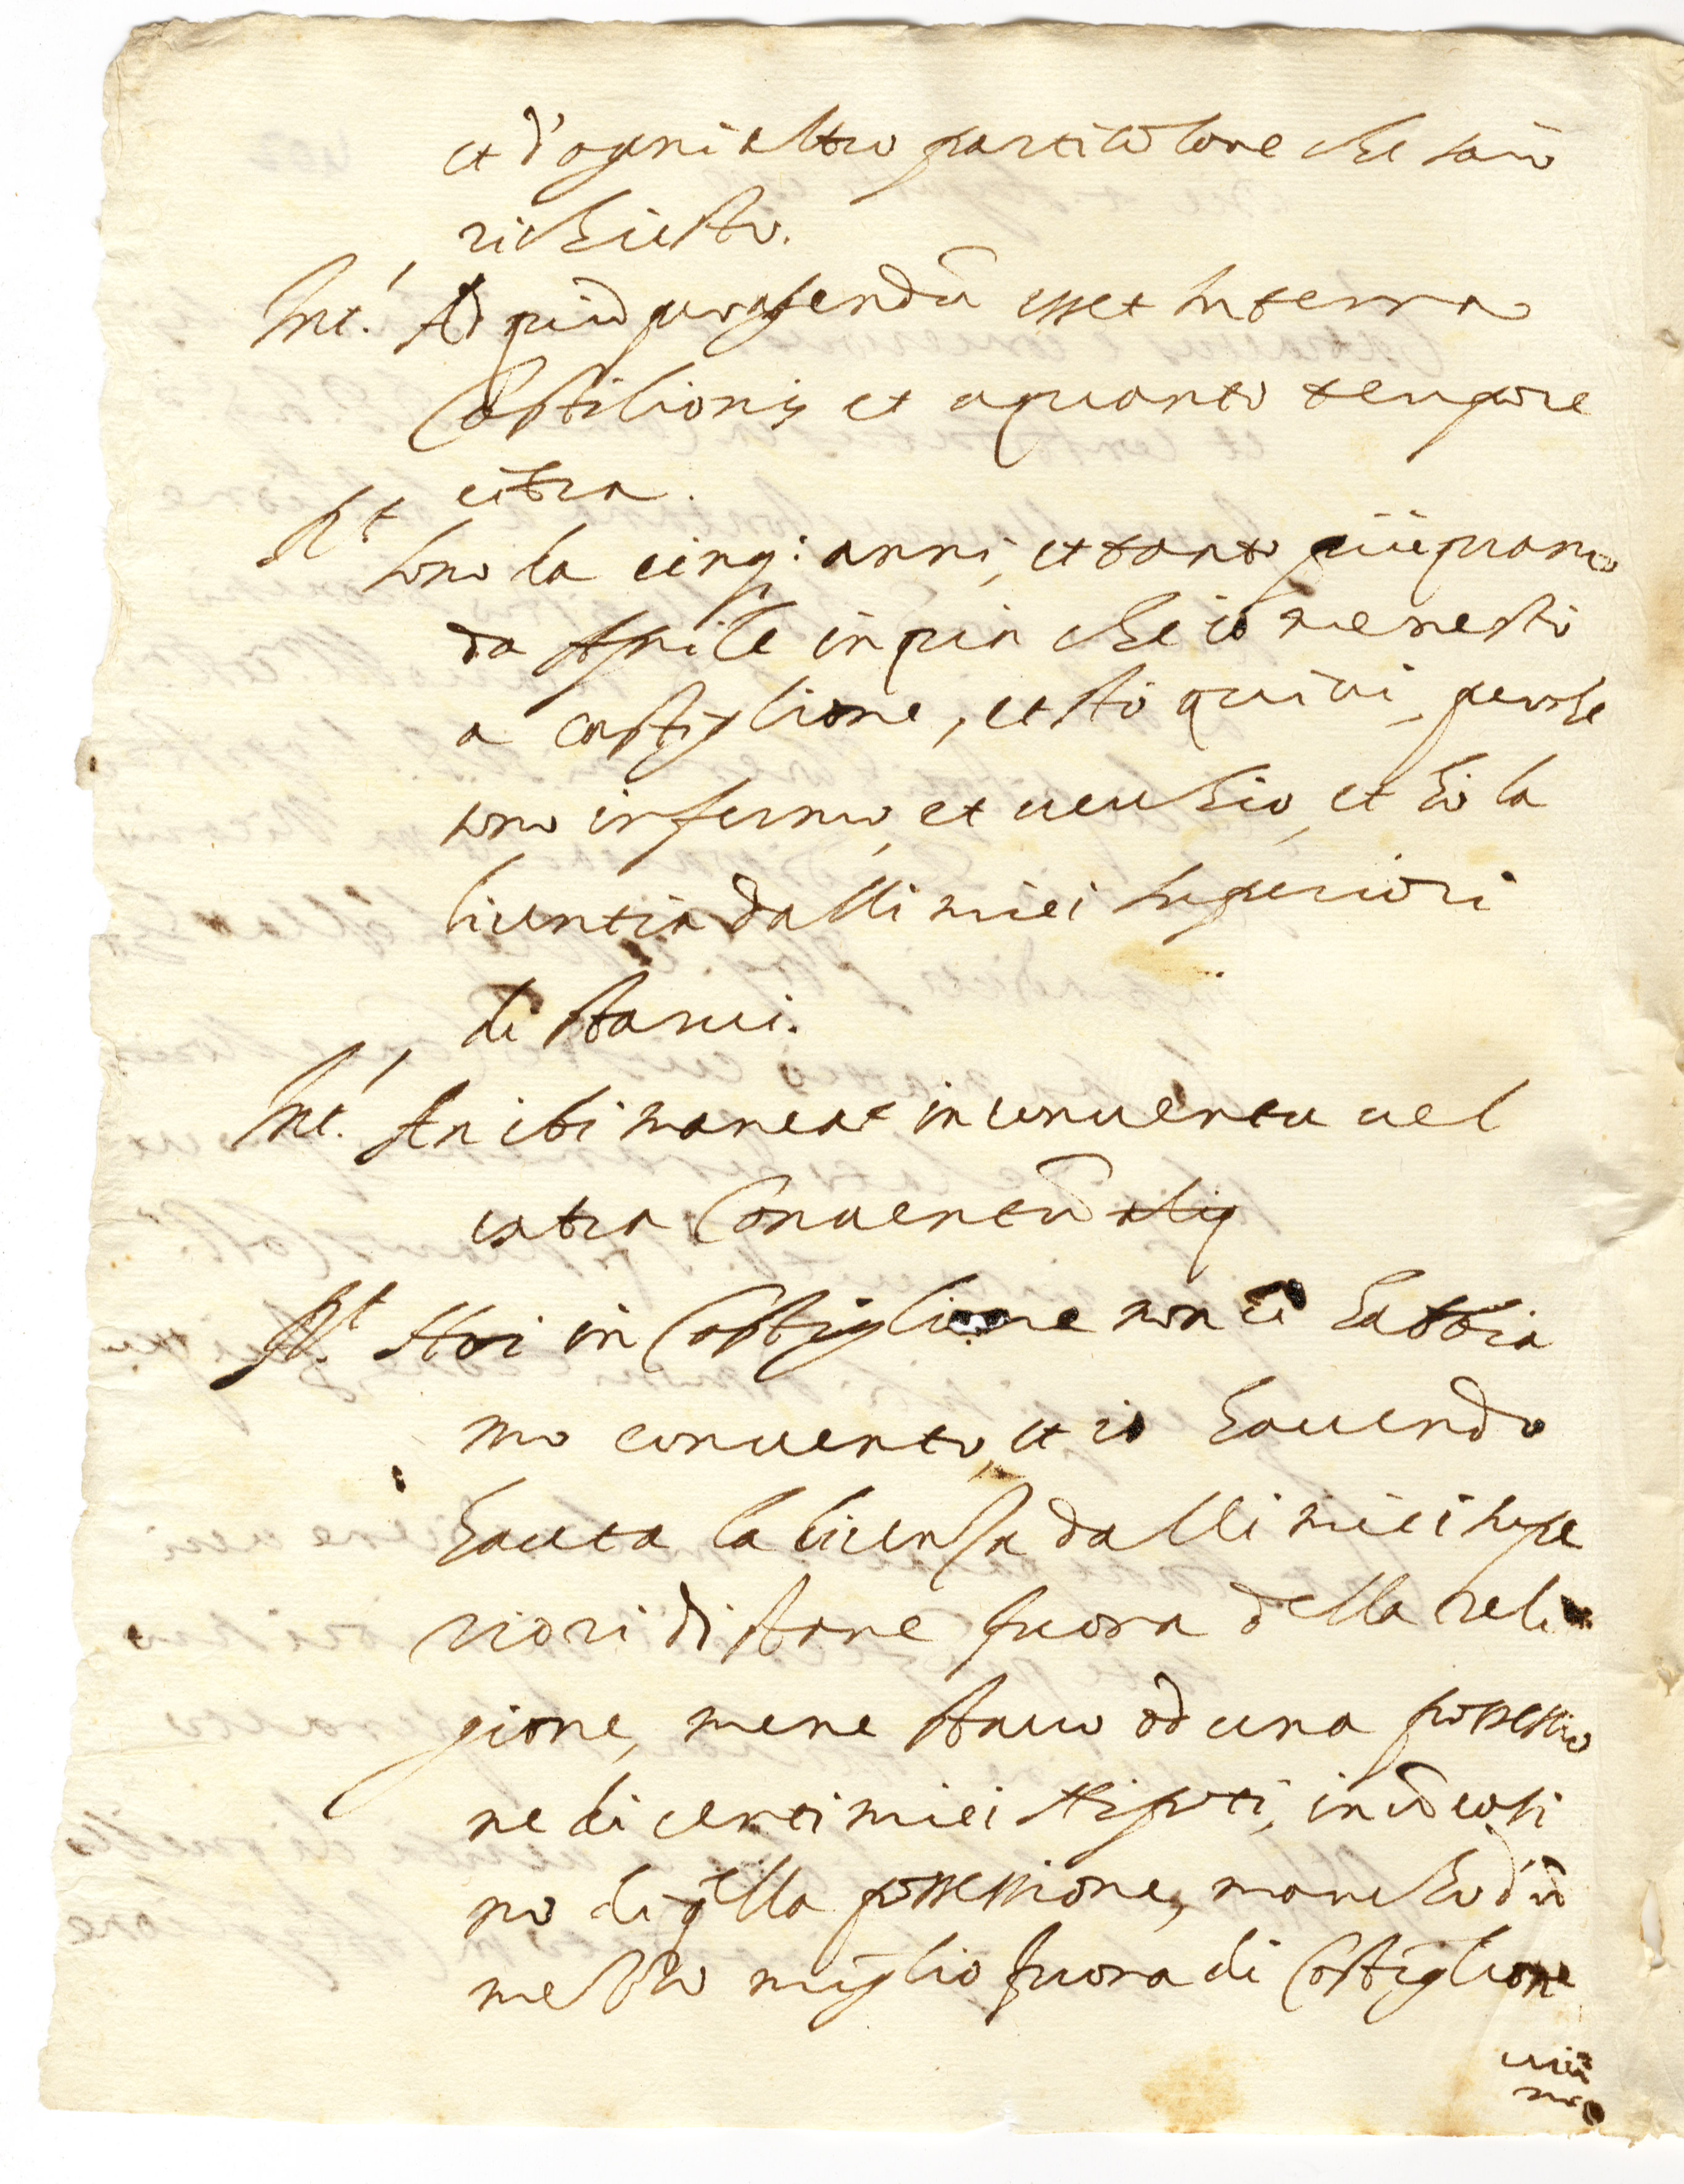 et d'ogni altro particolare che sarò
richiesto.
Int.' Ad quid peragendũ esset in terra
Castilionis et a quanto tempore
citra.
R.t sono da cinq: anni, et tanto più quanto
da Aprile in qua che io me ne stò
a castiglione, et stò quivi, perche
sono infermo, et vecchio, et hò la
licentia dalli miei superiori
di starvi.
Int.' An ibi maneat in conventu vel
extra Conventũ
R.t Noi in Castiglione non ci habbia
mo convento, et io havendo
havuta la licenza dalli miei supe
riori di stare fuora della reli
gione, me ne stavo ad una possessio
ne di certi miei Nipoti, in casi
no di qlla possessione, manche d'ũ
mezzo miglio fuora di Castiglione